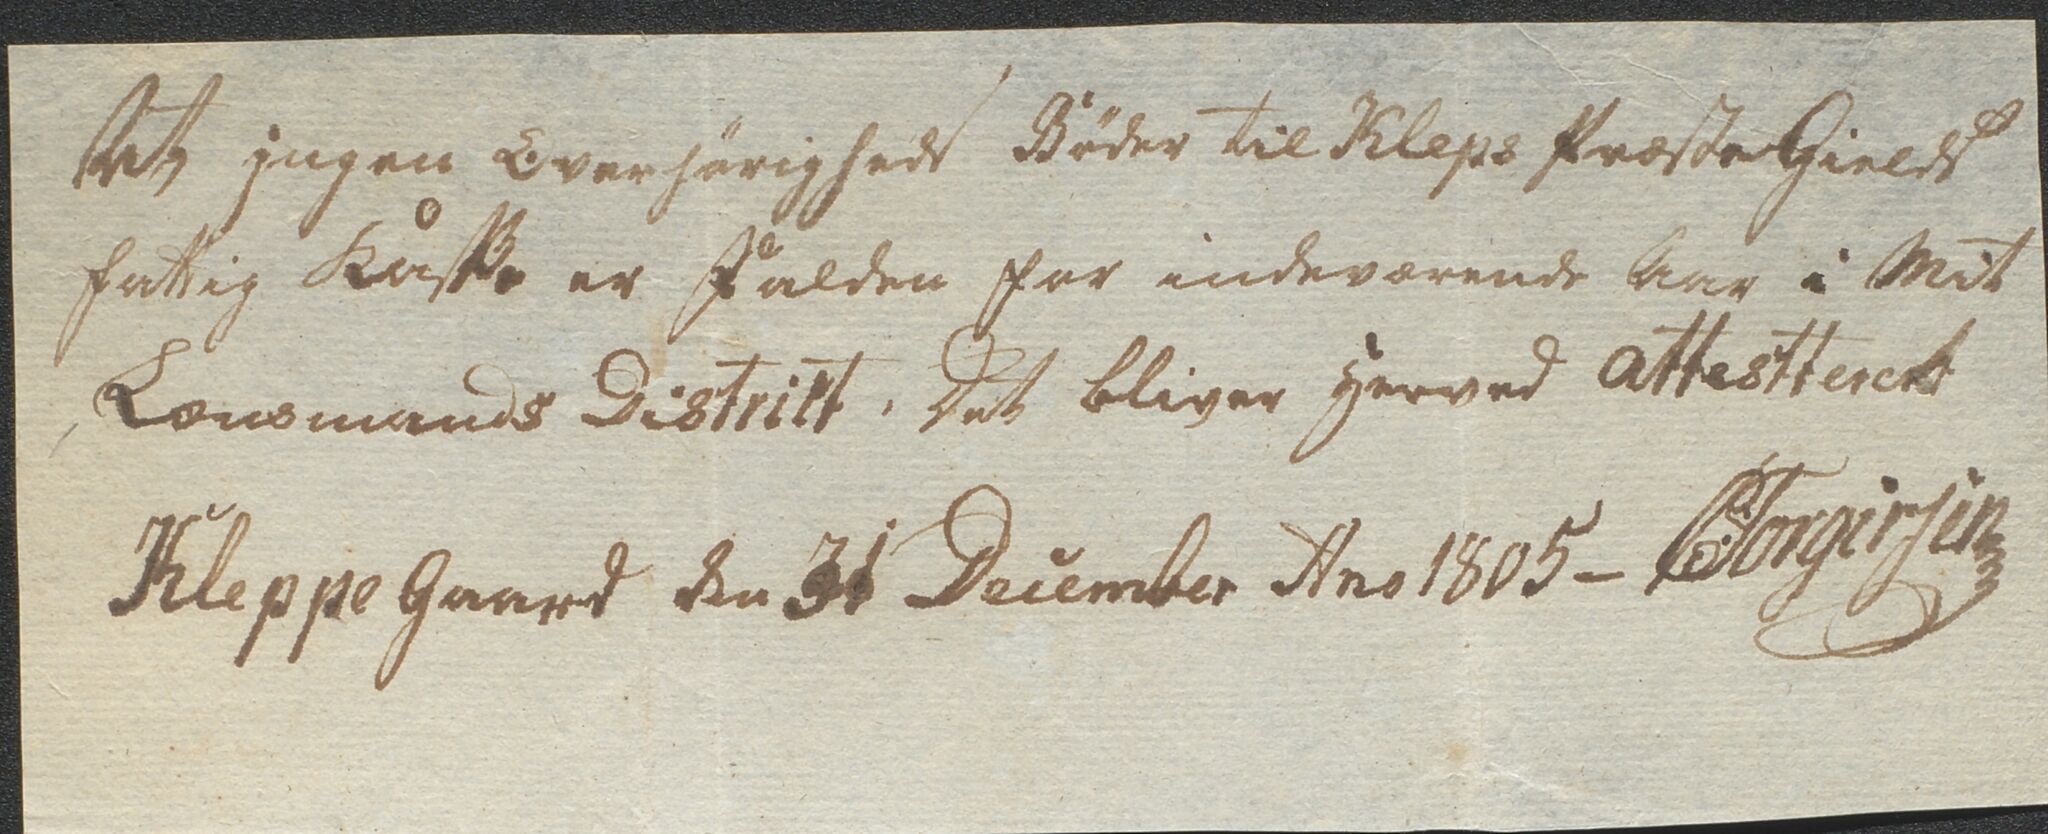 At jngen Overhörigheds Böder til Kleps Præste Gields
fattig Kasse er Falden for indeværende Aar i Mit
Lensmands District, Det bliver Herved Attestterert
Kleppe Gaard den 31 December Ano 1805 – Torgirsen